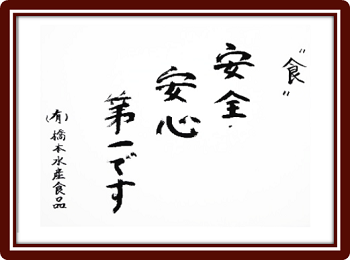 〝食〟
安全・
安心
第一です
(有)橋本水産食品